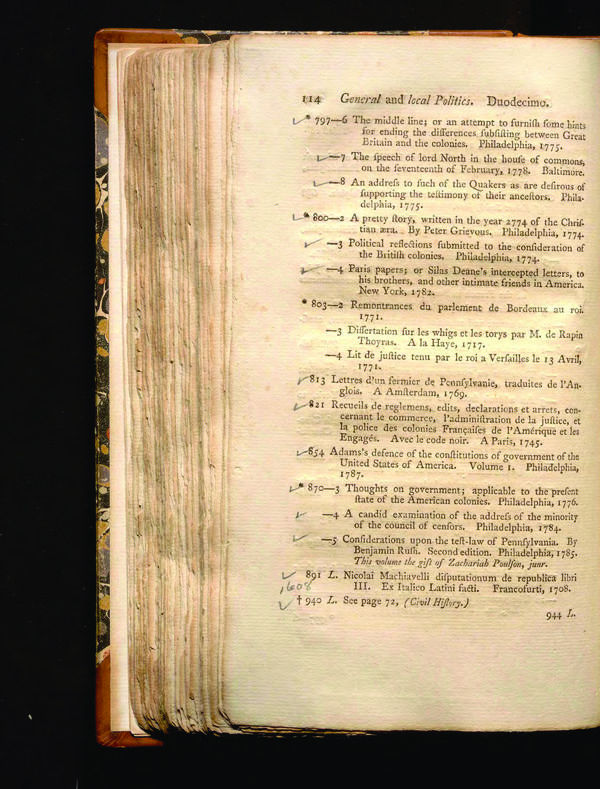 114 General and local Politics. Duodecimo.
* 797—6 The middle line; or an attempt to furniſh ſome hints
for ending the differences ſubſiſting between Great
Britain and the colonies. Philadelphia, 1775.
—7 The ſpeech of lord North in the houſe of commons,
on the ſeventeenth of February, 1778. Baltimore.
—8 An addreſs to ſuch of the Quakers as are deſirous of
ſupporting the teſtimony of their anceſtors. Phila-
delphia, 1775.
* 800—2 A pretty ſtory, written in the year 2774 of the Chriſ-
tian æra. By Peter Grievous. Philadelphia, 1774.
—3 Political reflections ſubmitted to the conſideration of
the Britiſh colonies. Philadelphia, 1774.
—4 Paris papers; or Silas Deane's intercepted letters, to
his brothers, and other intimate friends in America.
New York, 1782.
* 803—2 Remontrances du parlement de Bordeaux au roi.
1771.
—3 Diſſertation ſur les whigs et les torys par M. de Rapin
Thoyras. A la Haye, 1717.
—4 Lit de juſtice tenu par le roi a Verſailles le 13 Avril,
1771.
813 Lettres d'un fermier de Penſylvanie, traduites de l'An-
glois. A Amſterdam, 1769.
821 Recueils de reglemens, edits, declarations et arrets, con-
cernant le commerce, l'adminiſtration de la juſtice, et
la police des colonies Françaiſes de l'Amérique et les
Engagés. Avec le code noir. A Paris, 1745.
854 Adams's defence of the conſtitutions of government of the
United States of America. Volume 1. Philadelphia,
1787.
* 870—3 Thoughts on government; applicable to the preſent
ſtate of the American colonies. Philadelphia, 1776.
—4 A candid examination of the addreſs of the minority
of the council of cenſors. Philadelphia, 1784.
—5 Conſiderations upon the teſt-law of Pennſylvania. By
Benjamin Ruſh. Second edition. Philadelphia, 1785.
This volume the gift of Zachariah Poulſon, junr.
891 L. Nicolai Machiavelli diſputationum de republica libri
1608 III. Ex Italico Latini facti. Francofurti, 1708.
† 940 L. See page 72, (Civil Hiſtory.)
944 L.